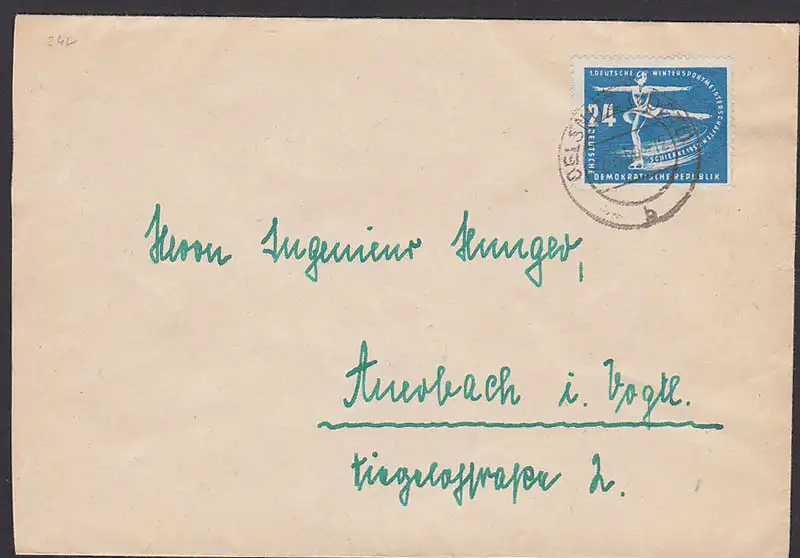 242
1. DEUTSCHE WINTERSPORTMEISTERSCHAFTEN
24
SCHIERKE 1950
DEUTSCHE
DEMOKRATISCHE REPUBLIK
OELSN
b
Herrn Ingenieur Hunger,
Auerbach i. Vogtl.
Siegelohstraße 2.